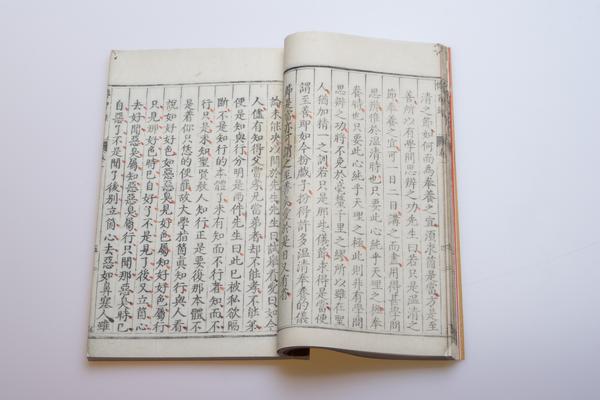 清之節如何而為奉養之宜須求箇是當方是至
善所以有學問思辨之功先生曰若只是溫清之
節奉養之宜可一日二日講之而盡用得甚學問
思辨惟於溫清時也只要此心純乎天理之極奉
養時也只要此心純乎天理之極此則非有學問
思辨之功將不免於毫釐千里之繆所以雖在聖
人猶加精一之訓若只是那些儀節求得是當便
謂至善即如今扮戲子扮得許多溫清奉養的儀
節是當亦可謂之至善矣愛於是日又有省
論未能決以問於先生先生曰試舉看愛曰如今
人儘有知得父當孝兄當弟者却不能孝不能弟
便是知與行分明是兩件先生曰此已被私欲隔
斷不是知行的本體了未有知而不行者知而不
行只是未知聖賢教人知行正是要復那本體不
是着你只恁的便罷故大學指箇真知行與人看
說如好好色如惡惡臭見好色屬知好好色屬行
只見那好色時已自好了不是見了後又立箇心
去好聞惡臭屬知惡惡臭屬行只聞那惡臭時已
自惡了不是聞了後別立箇心去惡如鼻塞人雖